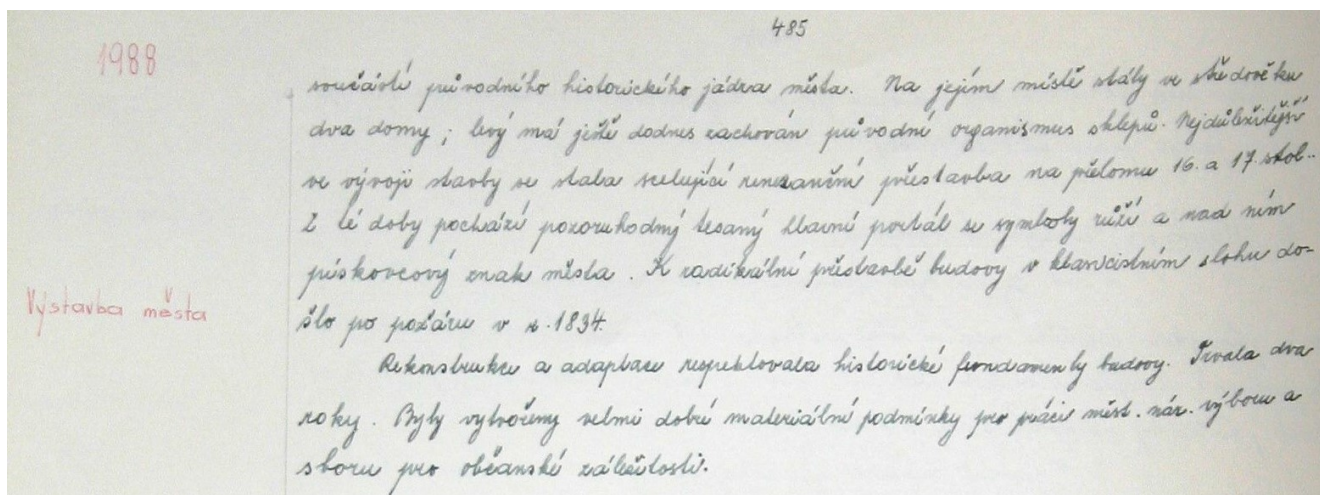 485
1988
součástí původního historického jádra města. Na jejím místě stály ve středověku
dva domy; levý má ještě dodnes zachován původní organismus sklepů. Nejdůležitější
ve vývoji stavby se stala scelující renezanční přestavba na přelomu 16. a 17. stol..
Z té doby pochází pozoruhodný tesaný hlavní portál se symboly růží a nad ním
pískovcový znak města. K radikální přestavbě budovy v klasicistním slohu do-
Výstavba města
šlo po požáru v r. 1834.
Rekonstrukce a adaptace respektovala historické fundamenty budovy. Trvala dva
roky. Byly vytvořeny velmi dobré materiální podmínky pro práci měst. nár. výboru a
sboru pro občanské záležitosti.